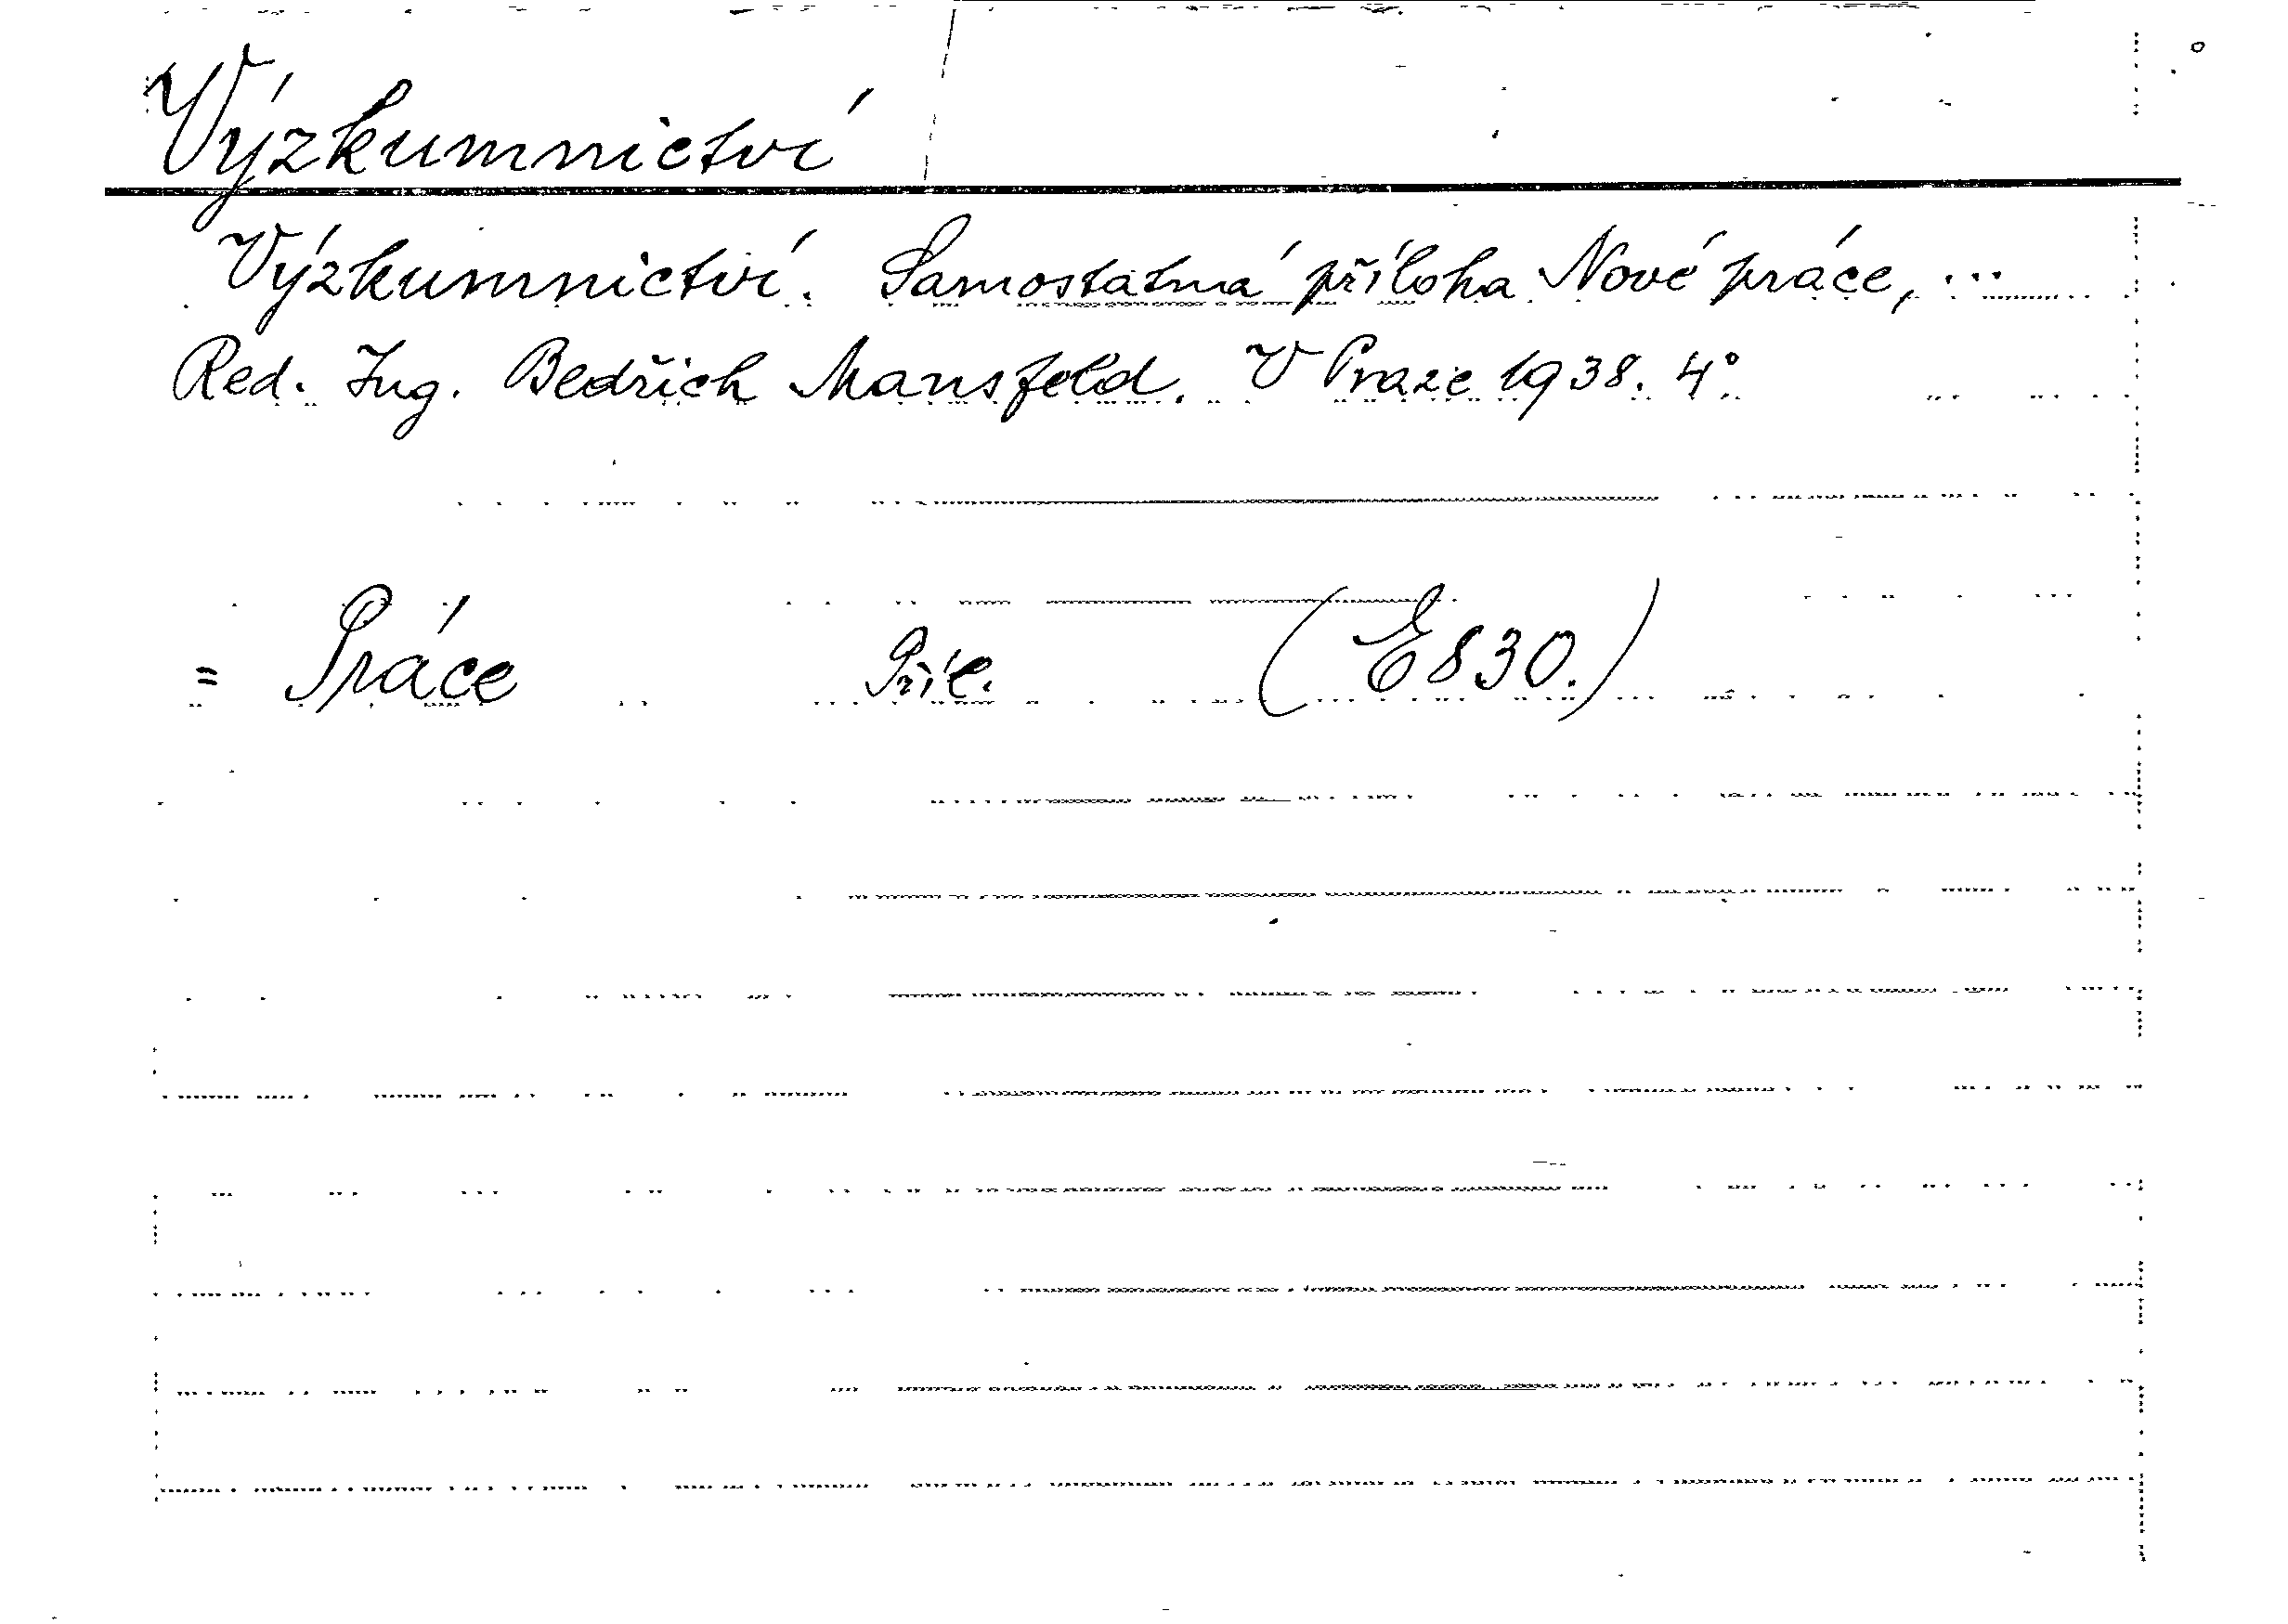 Výzkumnictví
Výzkumnictví. Samostatná příloha Nové práce, ...
Red. Ing. Bedřich Mansfeld. V Praze 1938. 4°
= Práce Příl. (E 830.)